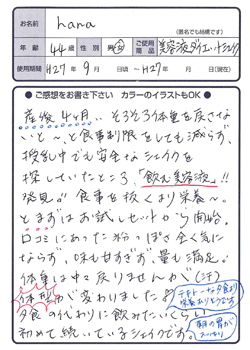 お名前
hana
(匿名でも結構です)
年齢 44歳 性別 男・女 ご使用商品 美容液ダイエットシェイク
使用期間 H27年 9月 日頃 ～ H27年 月 日(現在)
●ご感想をお書き下さい カラーのイラストもOK●
産後4ヶ月…そろそろ体重を戻さな
いと～、と食事制限をしても減らず、
授乳中でも安全なシェイクを
探していたところ、「飲む美容液」!!
発見。!! 食事を抜くより栄養～。
とまずはお試しセットから開始。
口コミにあった粉っぽさも全く気に
ならず、味も甘すぎず、量も満足。
体重は中々戻りませんが(汗)
体型が変わりました!!
テキトーな夕食より栄養ありそうです
夕食の代わりに飲みたいくらい
初めて続いているシェイクです。
朝の胃がスッキリ